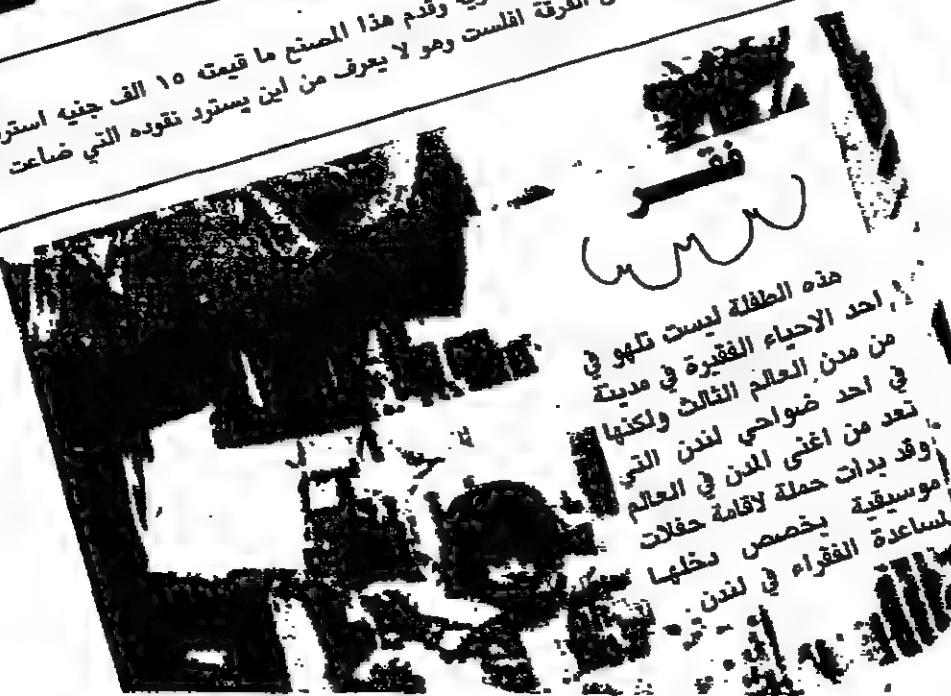 وقدم هذا المصنع ما قيمته ١٥ الف جنيه
الفرقة افلست وهو لا يعرف من اين يسترد نقوده التي ضاعت
فقر
هذه الطفلة ليست تلهو في
احد الاحياء الفقيرة في مدينة
من مدن العالم الثالث ولكنها
في احد ضواحي لندن التي
تعد من اغنى المدن في العالم
وقد بدأت حملة لاقامة حفلات
موسيقية يخصص دخلها
لمساعدة الفقراء في لندن.